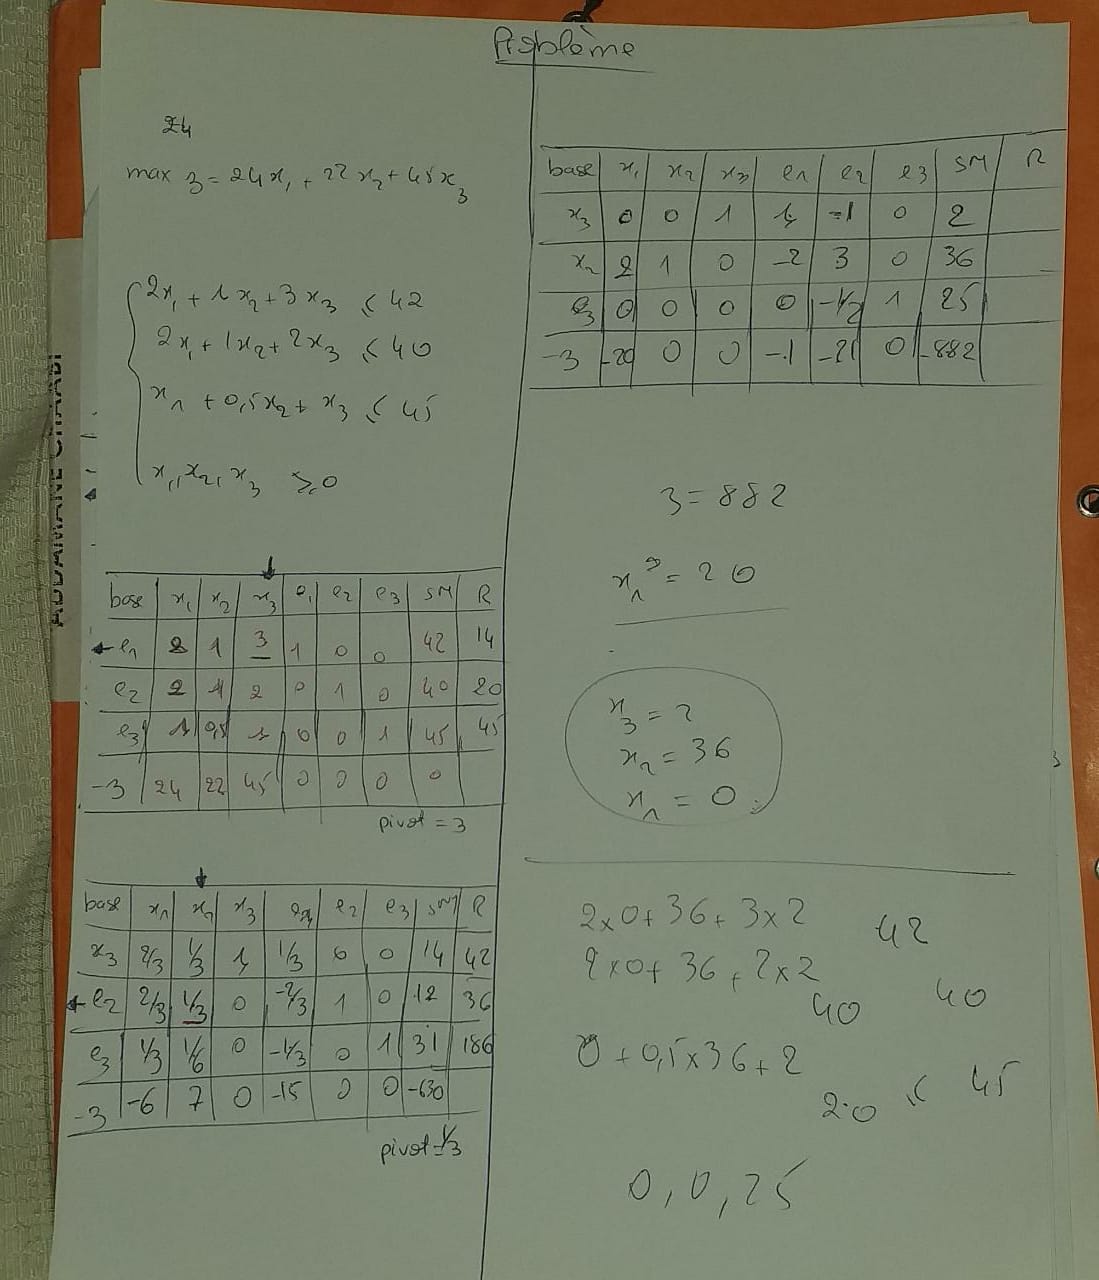 Problème
24
max z = 24x₁ + 22x₂ + 45x₃
2x₁ + 1x₂ + 3x₃ ≤ 42
2x₁ + 1x₂ + 2x₃ ≤ 40
x₁ + 0,5x₂ + x₃ ≤ 45
x₁, x₂, x₃ ≥ 0
base x₁ x₂ x₃ e₁ e₂ e₃ SM R
e₁ 2 1 3 1 0 0 42 14
e₂ 2 1 2 0 1 0 40 20
e₃ 1 0,5 1 0 0 1 45 45
-z 24 22 45 0 0 0 0
pivot = 3
base x₁ x₂ x₃ e₁ e₂ e₃ SM R
x₃ 2/3 1/3 1 1/3 0 0 14 42
e₂ 2/3 1/3 0 -2/3 1 0 12 36
e₃ 1/3 1/6 0 -1/3 0 1 31 186
-z -6 7 0 -15 0 0 -630
pivot = 1/3
base x₁ x₂ x₃ e₁ e₂ e₃ SM R
x₃ 0 0 1 1 -1 0 2
x₂ 2 1 0 -2 3 0 36
e₃ 0 0 0 0 -1/2 1 25
-z -20 0 0 -1 -21 0 -882
z = 882
= 20
x₃ = 2
x₂ = 36
x₁ = 0
2x0 + 36 + 3x2 42
2x0 + 36 + 2x2
40 40
0 + 0,5x36 + 2
20 ≤ 45
0, 0, 25